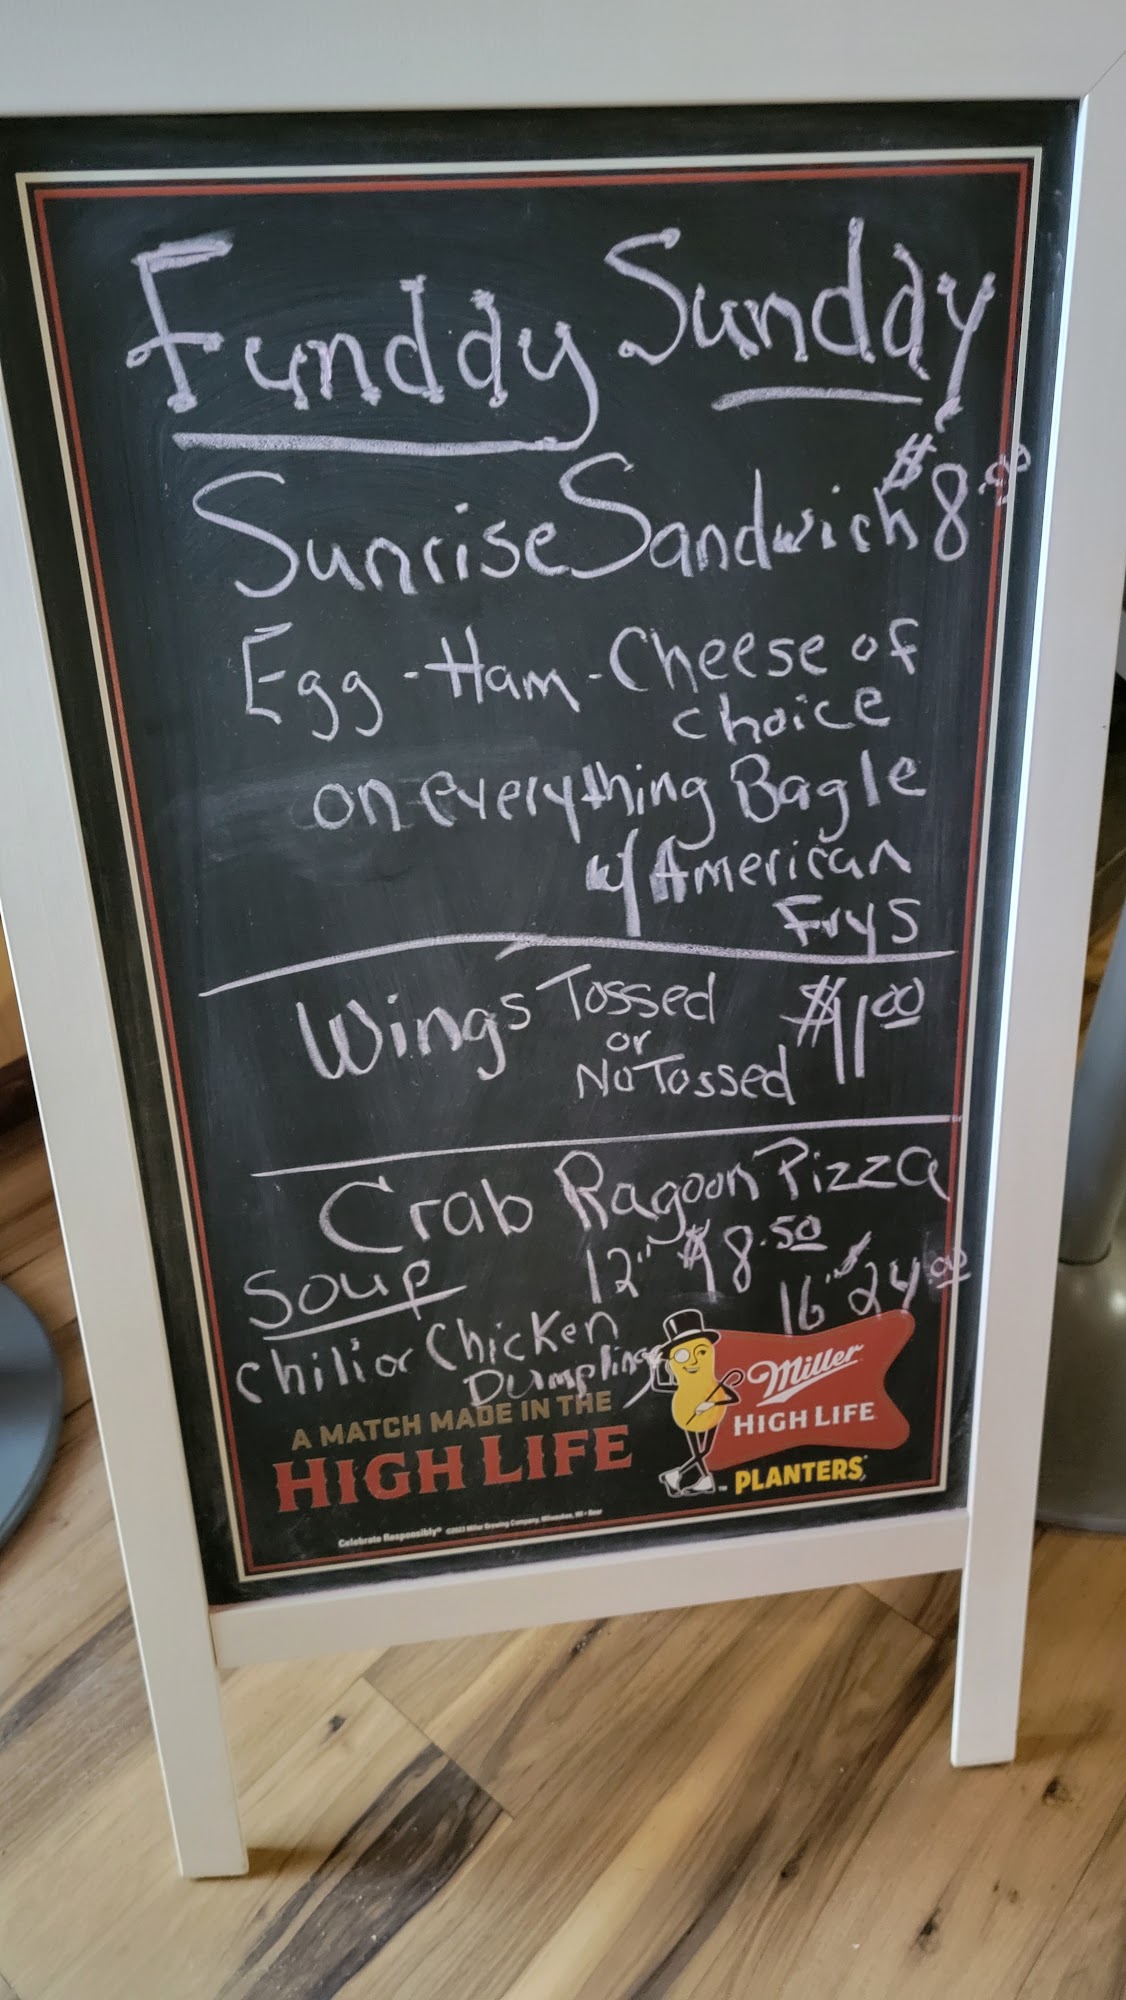 Funday Sunday
Sunrise Sandwich $8.00
Egg - Ham - Cheese of
choice
on everything Bagle
w/ American
Frys
Wings Tossed or No Tossed $11.00
Crab Ragoon Pizza
12" $18.50 16" $24.00
Soup
Chili or Chicken
Dumpling
A MATCH MADE IN THE
HIGH LIFE
Miller
HIGH LIFE
PLANTERS
Celebrate Responsibly® ©2023 Miller Brewing Company, Milwaukee, WI • Beer